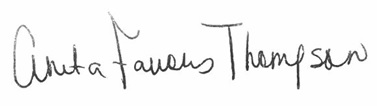 Anita Favors Thompson